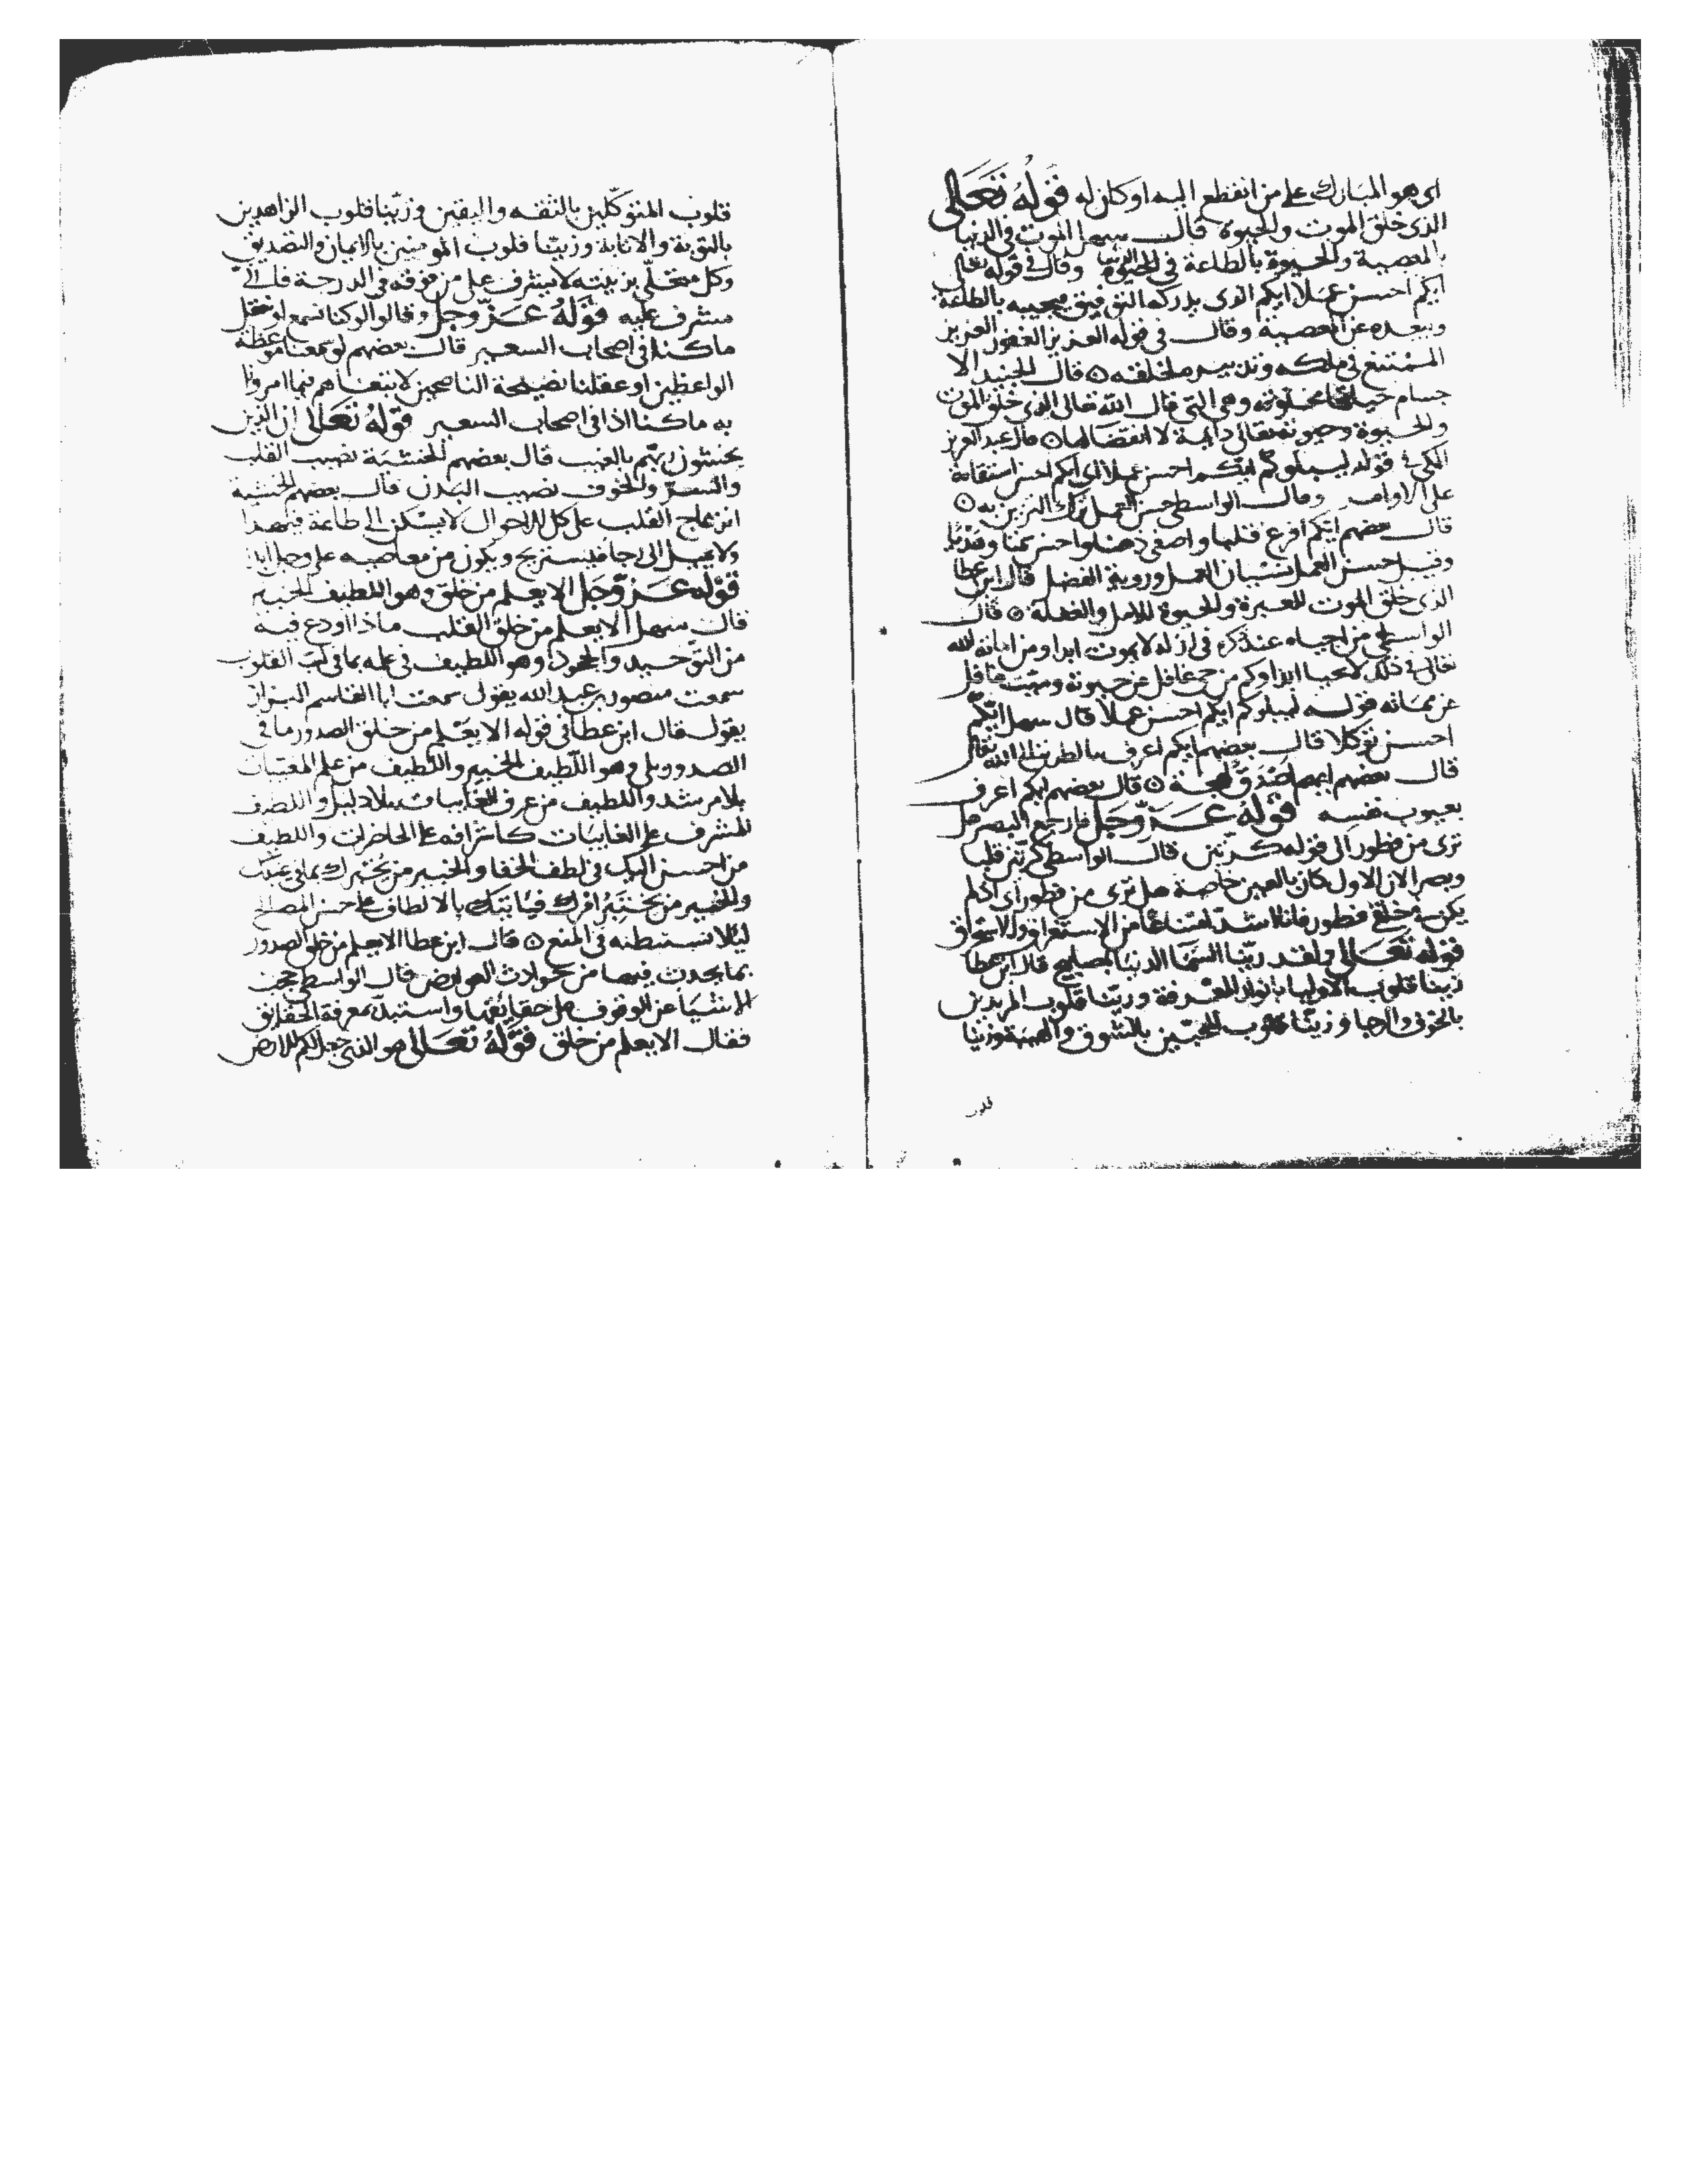 اى هو المبارك على من انقطع اليه او كان له قوله تعالى
الذى خلق الموت والحيوة قال سهل الموت فى الدنيا
بالمعصية والحيوة بالطاعة فى وقال فى قوله تعلى
ايكم احسن عملا ايكم الذى يدركه التوفيق بالطاعة
ويبعده عن المعصية وقال فى قوله العزيز الغفور العزيز
الممتنع فى ملكه وتدبيره لخلقه قال الجنيد الا
جسام حياتها مخلوقة وهى التى قال الله تعالى الذى خلق الموت
والحيوة وحيوته تعالى دايمة لا انقضا لها قال عبد العزيز
المكى فى قوله ليبلوكم ايكم احسن عملا اى ايكم احسن استقامة
على الاوامر وقال الواسطى حسن العمل ترك التزين به
قال بعضهم ايكم افرع قلبا واصفى ذهنا واحسن
وقيل حسن العمل نسيان العمل وروية الفضل قال ابن عطا
الذى خلق الموت للعبرة والحيوة للامل والغفلة قال
الواسطى من احياه عند ذكره فى ازله لا يموت ابدا ومن اماته الله
تعالى فى ذلك لا يحيا ابدا وكم من حى غافل عن حيوته وميت غافل
عن مماته قوله ليبلوكم ايكم احسن عملا قال سهل ايكم
احسن توكلا قال بعضهم ايكم اعرف بالطريق الى الله تعالى
قال بعضهم ايهم اصدق لهجة قال بعضهم ايكم اعرف
بعيوب نفسه قوله عز وجل فارجع البصر هل
ترى من فطور الى قوله كرتين قال الواسطى كرتين قلبا
وبصرا لان الاول كان بالعين خاصة هل ترى من فطور اى اذا لم
يكن فى خلقى فطور فانا اشد امتناعا من الاستغراق والاستحراق
قوله تعالى ولقد زينا السما الدنيا بمصابيح قال ابن عطا
زينا قلوب الاوليا بانوار المعرفة وزينا قلوب المريدين
بالخوف والرجا وزينا قلوب المحبين بالشوق والهيبة وزينا
قلوب
قلوب المتوكلين بالثقه واليقين وزينا قلوب الزاهدين
بالتوبة والانابة وزينا قلوب المومنين بالايمان والتصديق
وكل متحلى بزينته لا يشرف على من فوقه فى الدرجة
مشرف عليه قوله عز وجل وقالوا لو كنا نسمع او نعقل
ما كنا فى اصحاب السعير قال بعضهم لو سمعنا موعظة
الواعظين او عقلنا نصيحة الناصحين لاتبعناهم فيما امروا
به ما كنا اذا فى اصحاب السعير قوله تعالى ان الذين
يخشون ربهم بالغيب قال بعضهم الخشية نصيب القلب
والسر والخوف نصيب البدن قال بعضهم الخشية
انزعاج القلب على كل الاحوال لا يسكن الى طاعة فيهدا
ولا يميل الى رجا فيستريح ويكون من معاصيه على وجل
قوله عز وجل الا يعلم من خلق وهو اللطيف الخبير
قال سهل الا يعلم من خلق القلب ماذا اودع فيه
من التوحيد والجحود وهو اللطيف فى علمه بما فى لب القلوب
سمعت منصور بن عبد الله يقول سمعت ابا القاسم البزاز
يقول قال ابن عطا فى قوله الا يعلم من خلق الصدور ما فى
الصدور بلى وهو اللطيف الخبير واللطيف من علم المغيبات
بلا مرشد واللطيف من عرف الغايبات بلا دليل واللطيف
المشرف على الغايبات كاشرافه على الحاضرات واللطيف
من احسن اليك فى لطف الخفا والخبير من يختبرك بما فى
والخبير من يختبر امرك فياتيك بالالطاف على حسن المصالح
ليلا تستبطنه فى المنع قال ابن عطا الا يعلم من خلق الصدور
بما يحدث فيها من حوادث العوارض قال الواسطى حجب
الاشيا عن الوقوف على حقايقها واستبد بمعرفة الحقايق
فقال الا يعلم من خلق قوله تعالى هو الذى جعل لكم الارض